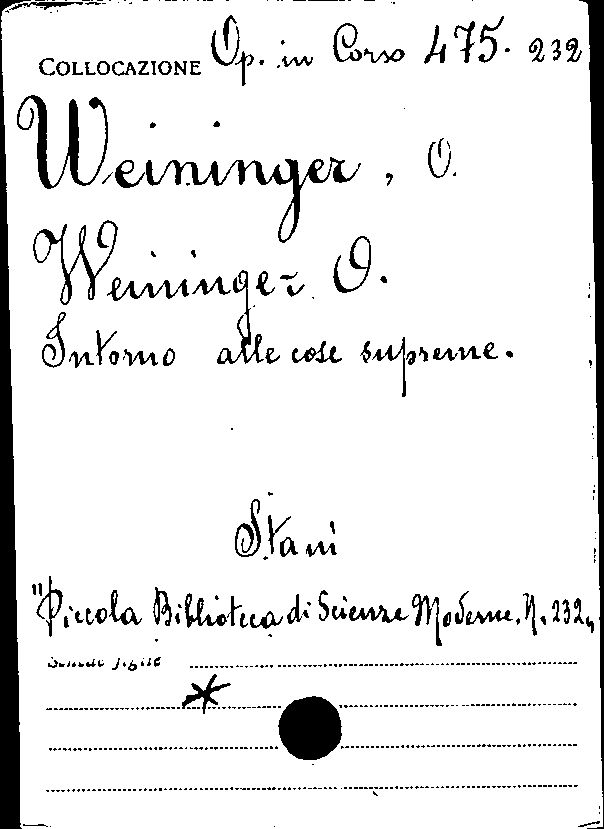 COLLOCAZIONE Op. in Corso 475. 232
Weininger, O.
Weininger O.
Intorno alle cose supreme.
"Piccola Biblioteca di Scienze Moderne. N. 232"